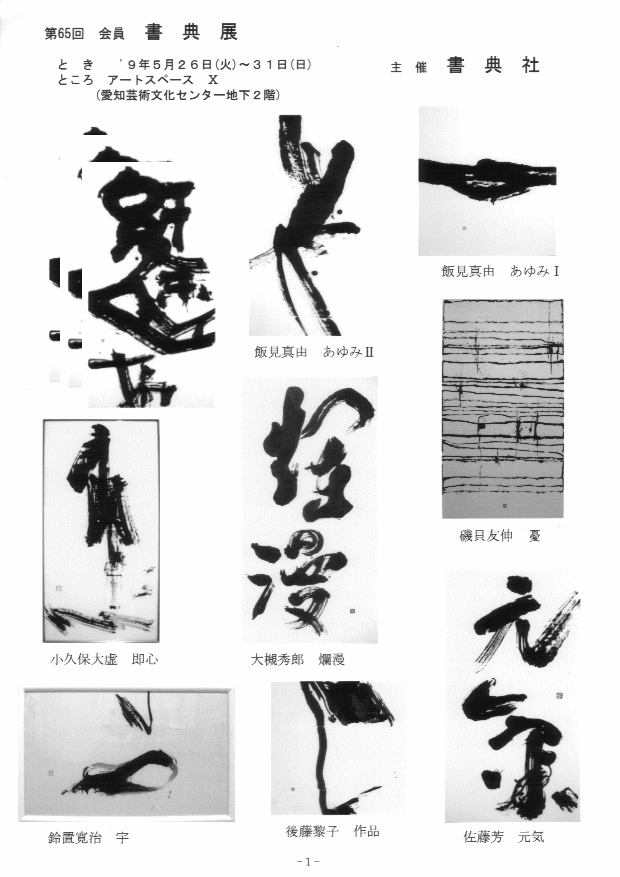 第65回 会員 書典展
とき '9年5月26日(火)～31日(日)
主催 書典社
ところ アートスペース X
(愛知芸術文化センター地下2階)
飯見真由 あゆみⅠ
飯見真由 あゆみⅡ
磯貝友伸 憂
小久保大虚 即心
大槻秀郎 爛漫
爛漫
元氣
鈴置寛治 宇
後藤黎子 作品
佐藤芳 元気
-1-